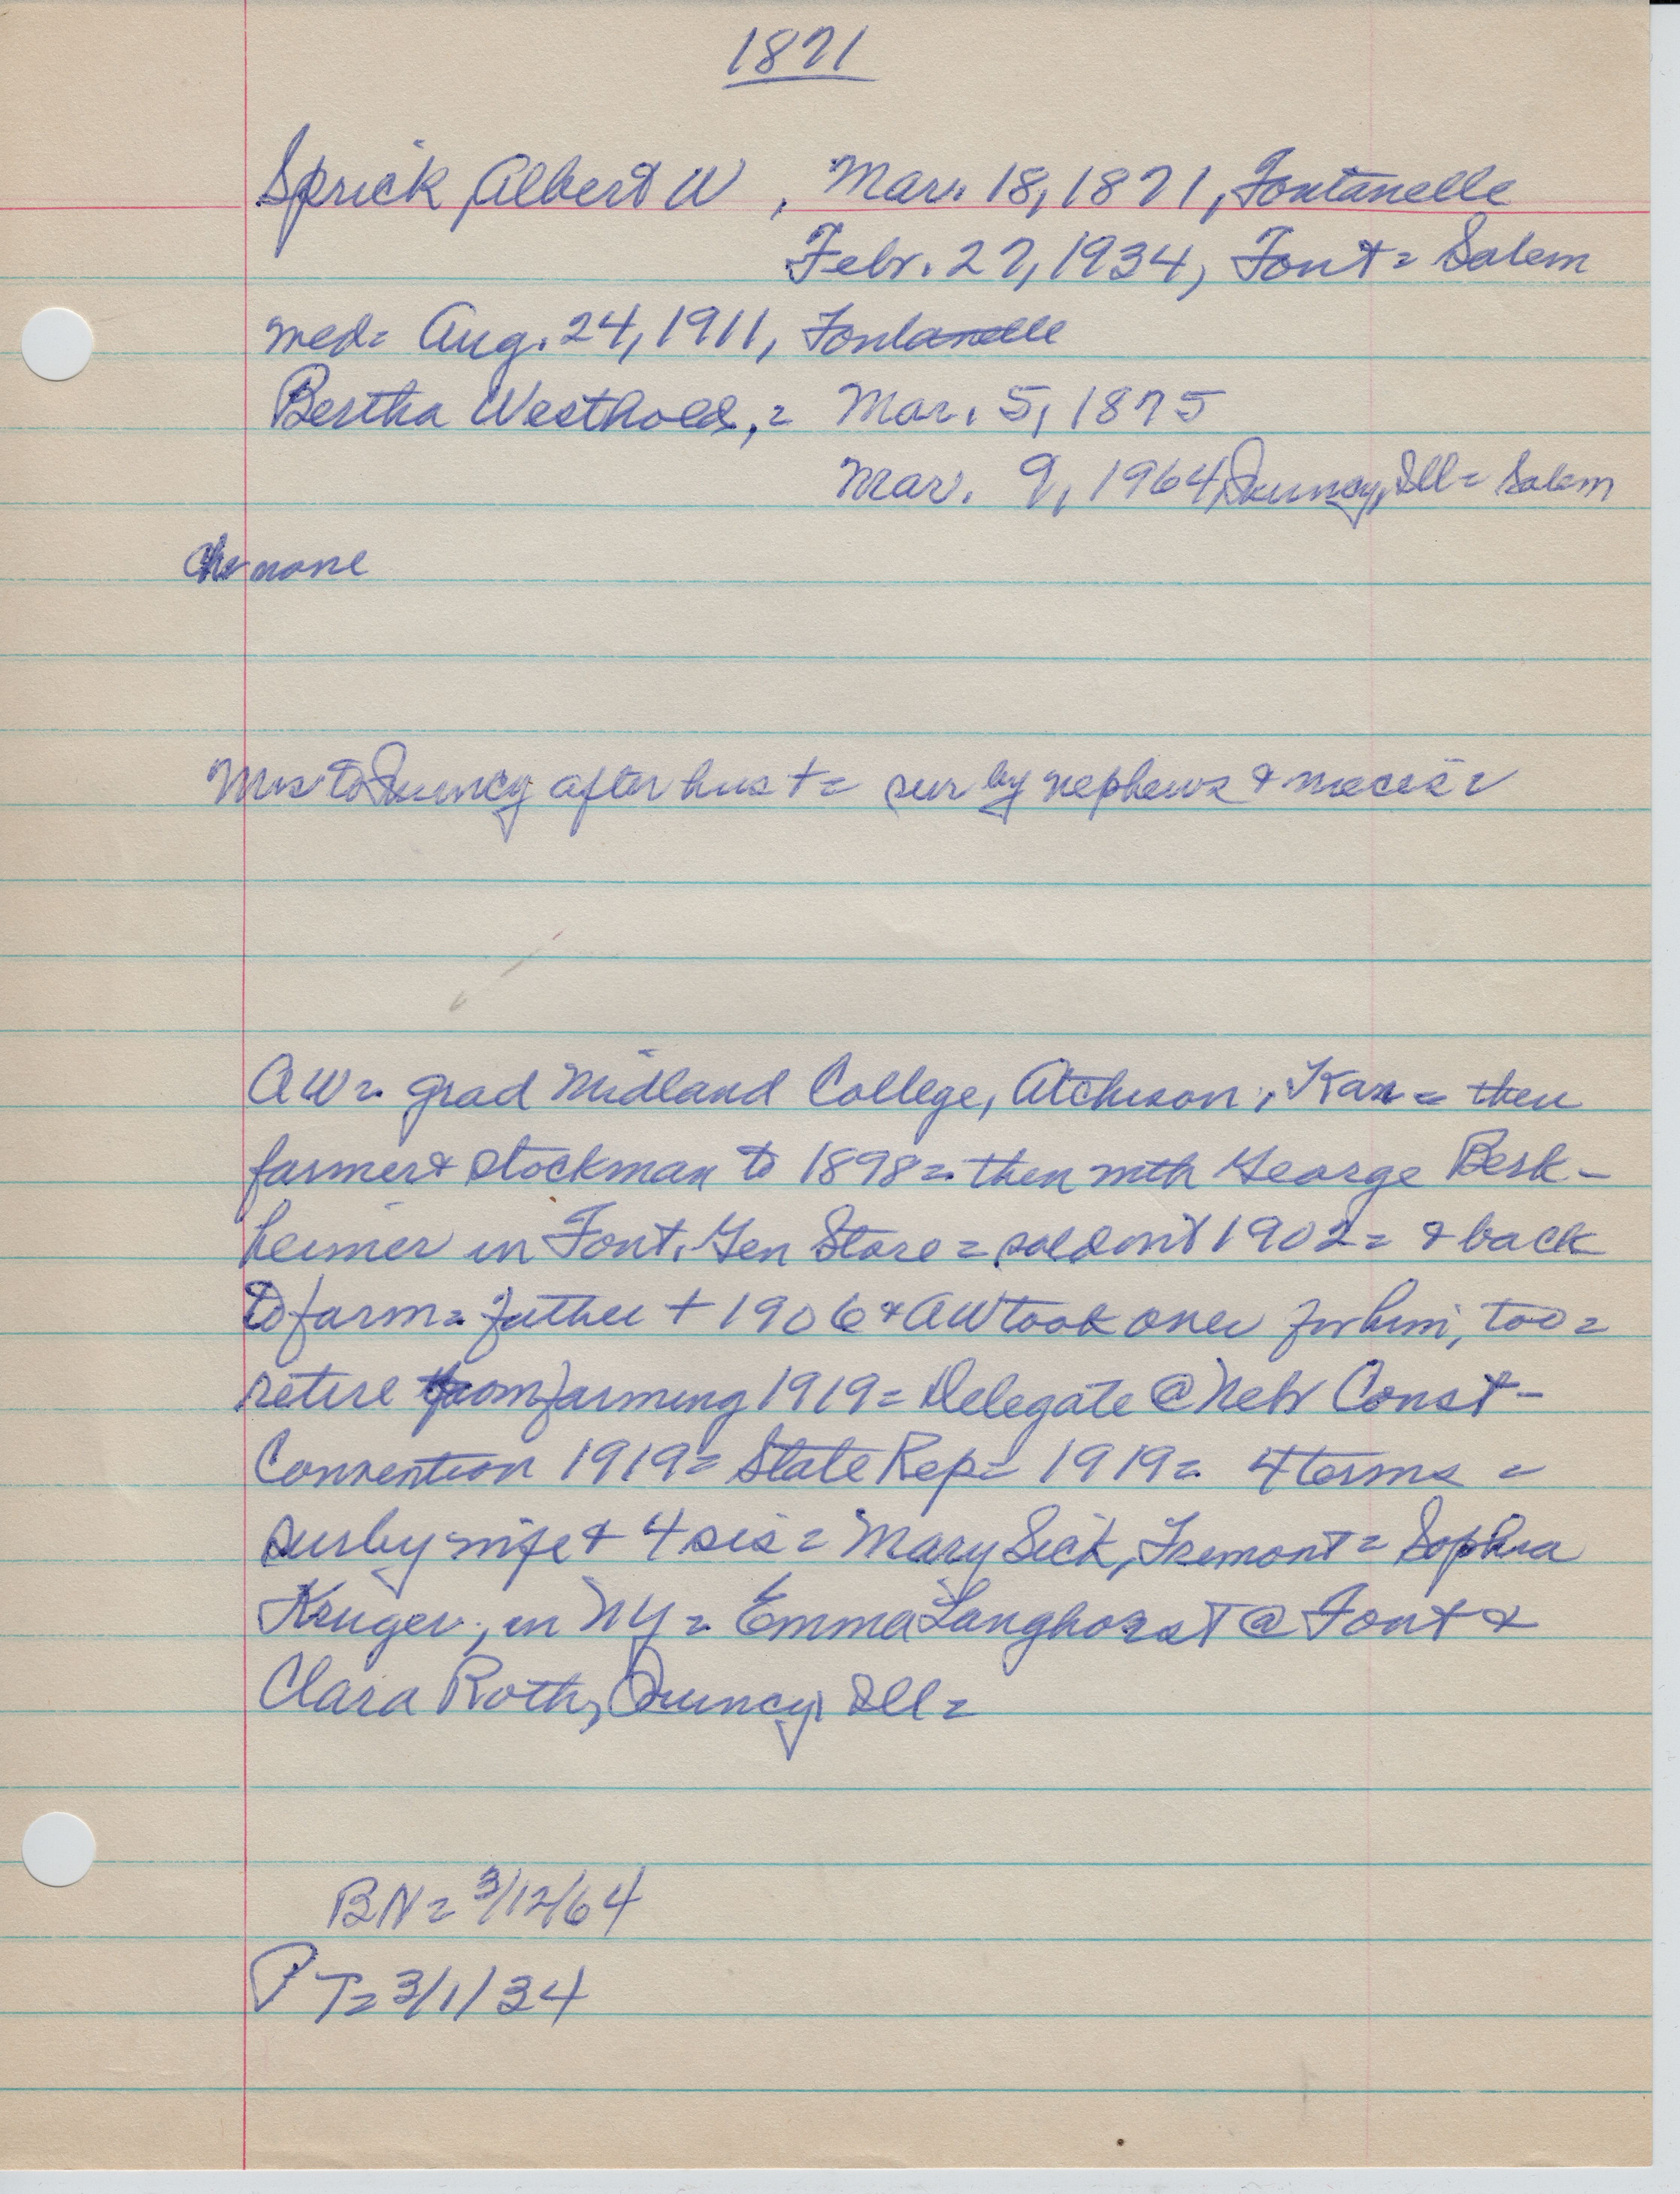 1871
Sprick, Albert W, Mar. 18, 1871, Fontanelle
Febr. 27, 1934, Font = Salem
med = Aug. 24, 1911, Fontanelle
Bertha Westhold, = Mar. 5, 1875
Mar. 9, 1964, Quincy, Ill = Salem
Ch = none
Mrs to Quincy after hus + = sur by nephews & nieces =
AW = grad Midland College, Atchison, Kan = then
farmer & stockman to 1898 = then with George Berk-
heimer in Font. Gen Store = sold out 1902 = & back
to farm = father + 1906 & AW took over for him, too =
retire from farming 1919 = Delegate @ Nebr Const-
Convention 1919 = State Rep = 1919 = 4 terms =
sur by wife & 4 sis = Mary Sick, Fremont = Sophia
Kruger, in NY = Emma Langhorst @ Font &
Clara Roth, Quincy, Ill =
BN = 3/12/64
PT = 3/1/34